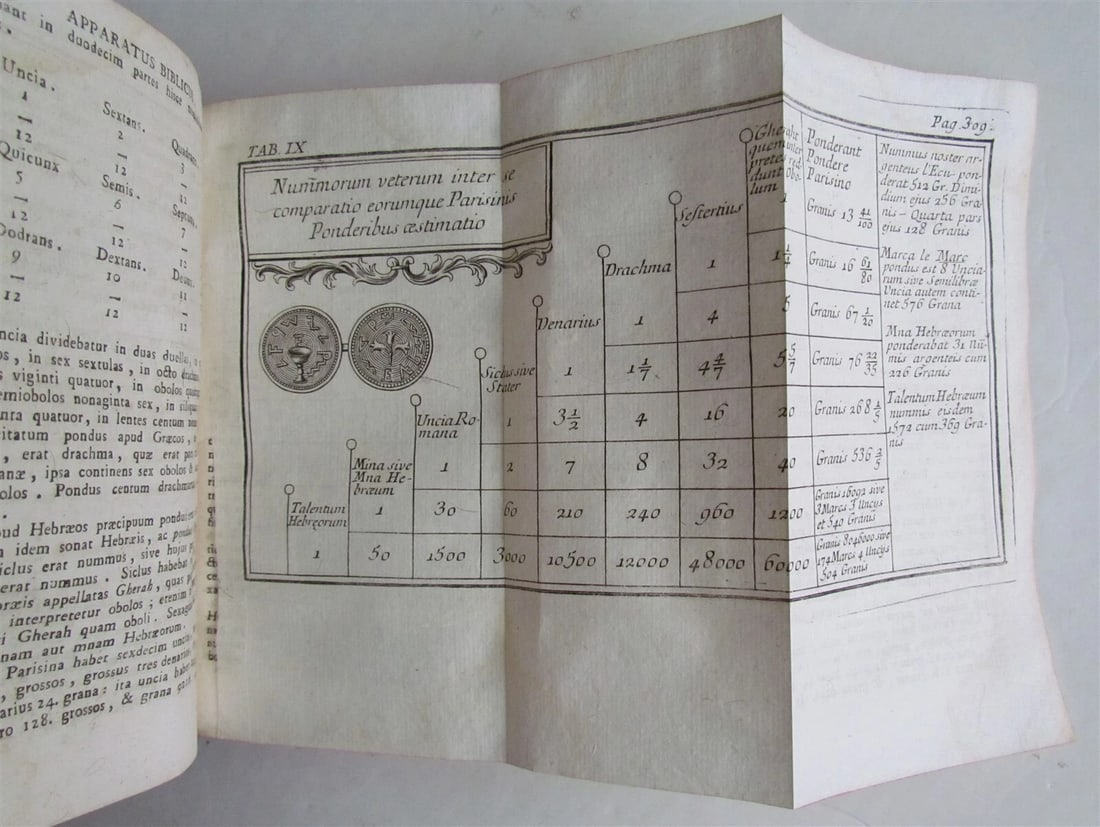 APPARATUS BIBLICUS
ant in duodecim partes hisce
Uncia. Sextans. Quadrans.
1 2 3
— — —
12 12 12
Quicunx Semis. Septunx
5 6 7
— — —
12 12 12
Dodrans. Dextans. Deunx.
9 10 11
— — —
12 12 12
ncia dividebatur in duas duellas,
os, in sex sextulas, in octo drachmas
s viginti quatuor, in obolos
emiobolos nonaginta sex, in siliquas
nta quatuor, in lentes centum
itatum pondus apud Græcos,
, erat drachma, quæ erat
anæ, ipsa continens sex obolos &
olos. Pondus centum drachmarum
oud Hebræos præcipuum pondus
n idem sonat Hebræis, ac pondus
siclus erat nummus, sive hujus
erat nummus. Siclus habebat
bræis appellatas Gherah, quas
interpretetur obolos; etenim
i Gherah quam oboli. Sexaginta
nam aut mnam Hebræorum.
Parisina habet sexdecim uncias
, grossos, grossus tres denarios
arius 24. grana: ita uncia habet
ro 128. grossos, & grana
TAB. IX
Pag. 309.
Nummorum veterum inter se
comparatio eorumque Parisinis
Ponderibus æstimatio
Gherah
quem inter
pretes red
dunt Obo
lum
1
1 1/4
5
5 5/7
20
40
1200
60000
Sestertius
1
4
4 4/7
16
32
960
48000
Drachma
1
1 1/7
4
8
240
12000
Denarius
1
3 1/2
7
210
10500
Siclus sive
Stater
1
2
60
3000
Uncia Ro-
mana
1
30
1500
Mina sive
Mna He-
bræum
1
50
Talentum
Hebręorum
1
Ponderant
Pondere
Parisino
Granis 13 41/100
Granis 16 61/80
Granis 67 1/20
Granis 76 22/35
Granis 268 1/5
Granis 536 2/5
Granis 16092 sive
3 Marcs 3 Uncys
et 540 Granis
Granis 8046000 sive
174 Marcs 4 Uncys
504 Granis
Nummus noster ar-
genteus l'Ecu pon-
derat 512 Gr. Dimi-
dium ejus 256 Gra-
nis - Quarta pars
ejus 128 Granis
Marca le Marc
pondus est 8 Uncia-
rum sive Semilibræ
Uncia autem conti-
net 576 Grana
Mna Hebræorum
ponderabat 31 Nu-
mis argenteis cum
226 Granis
Talentum Hebræum
nummis eisdem
1572 cum 369 Gra-
nis